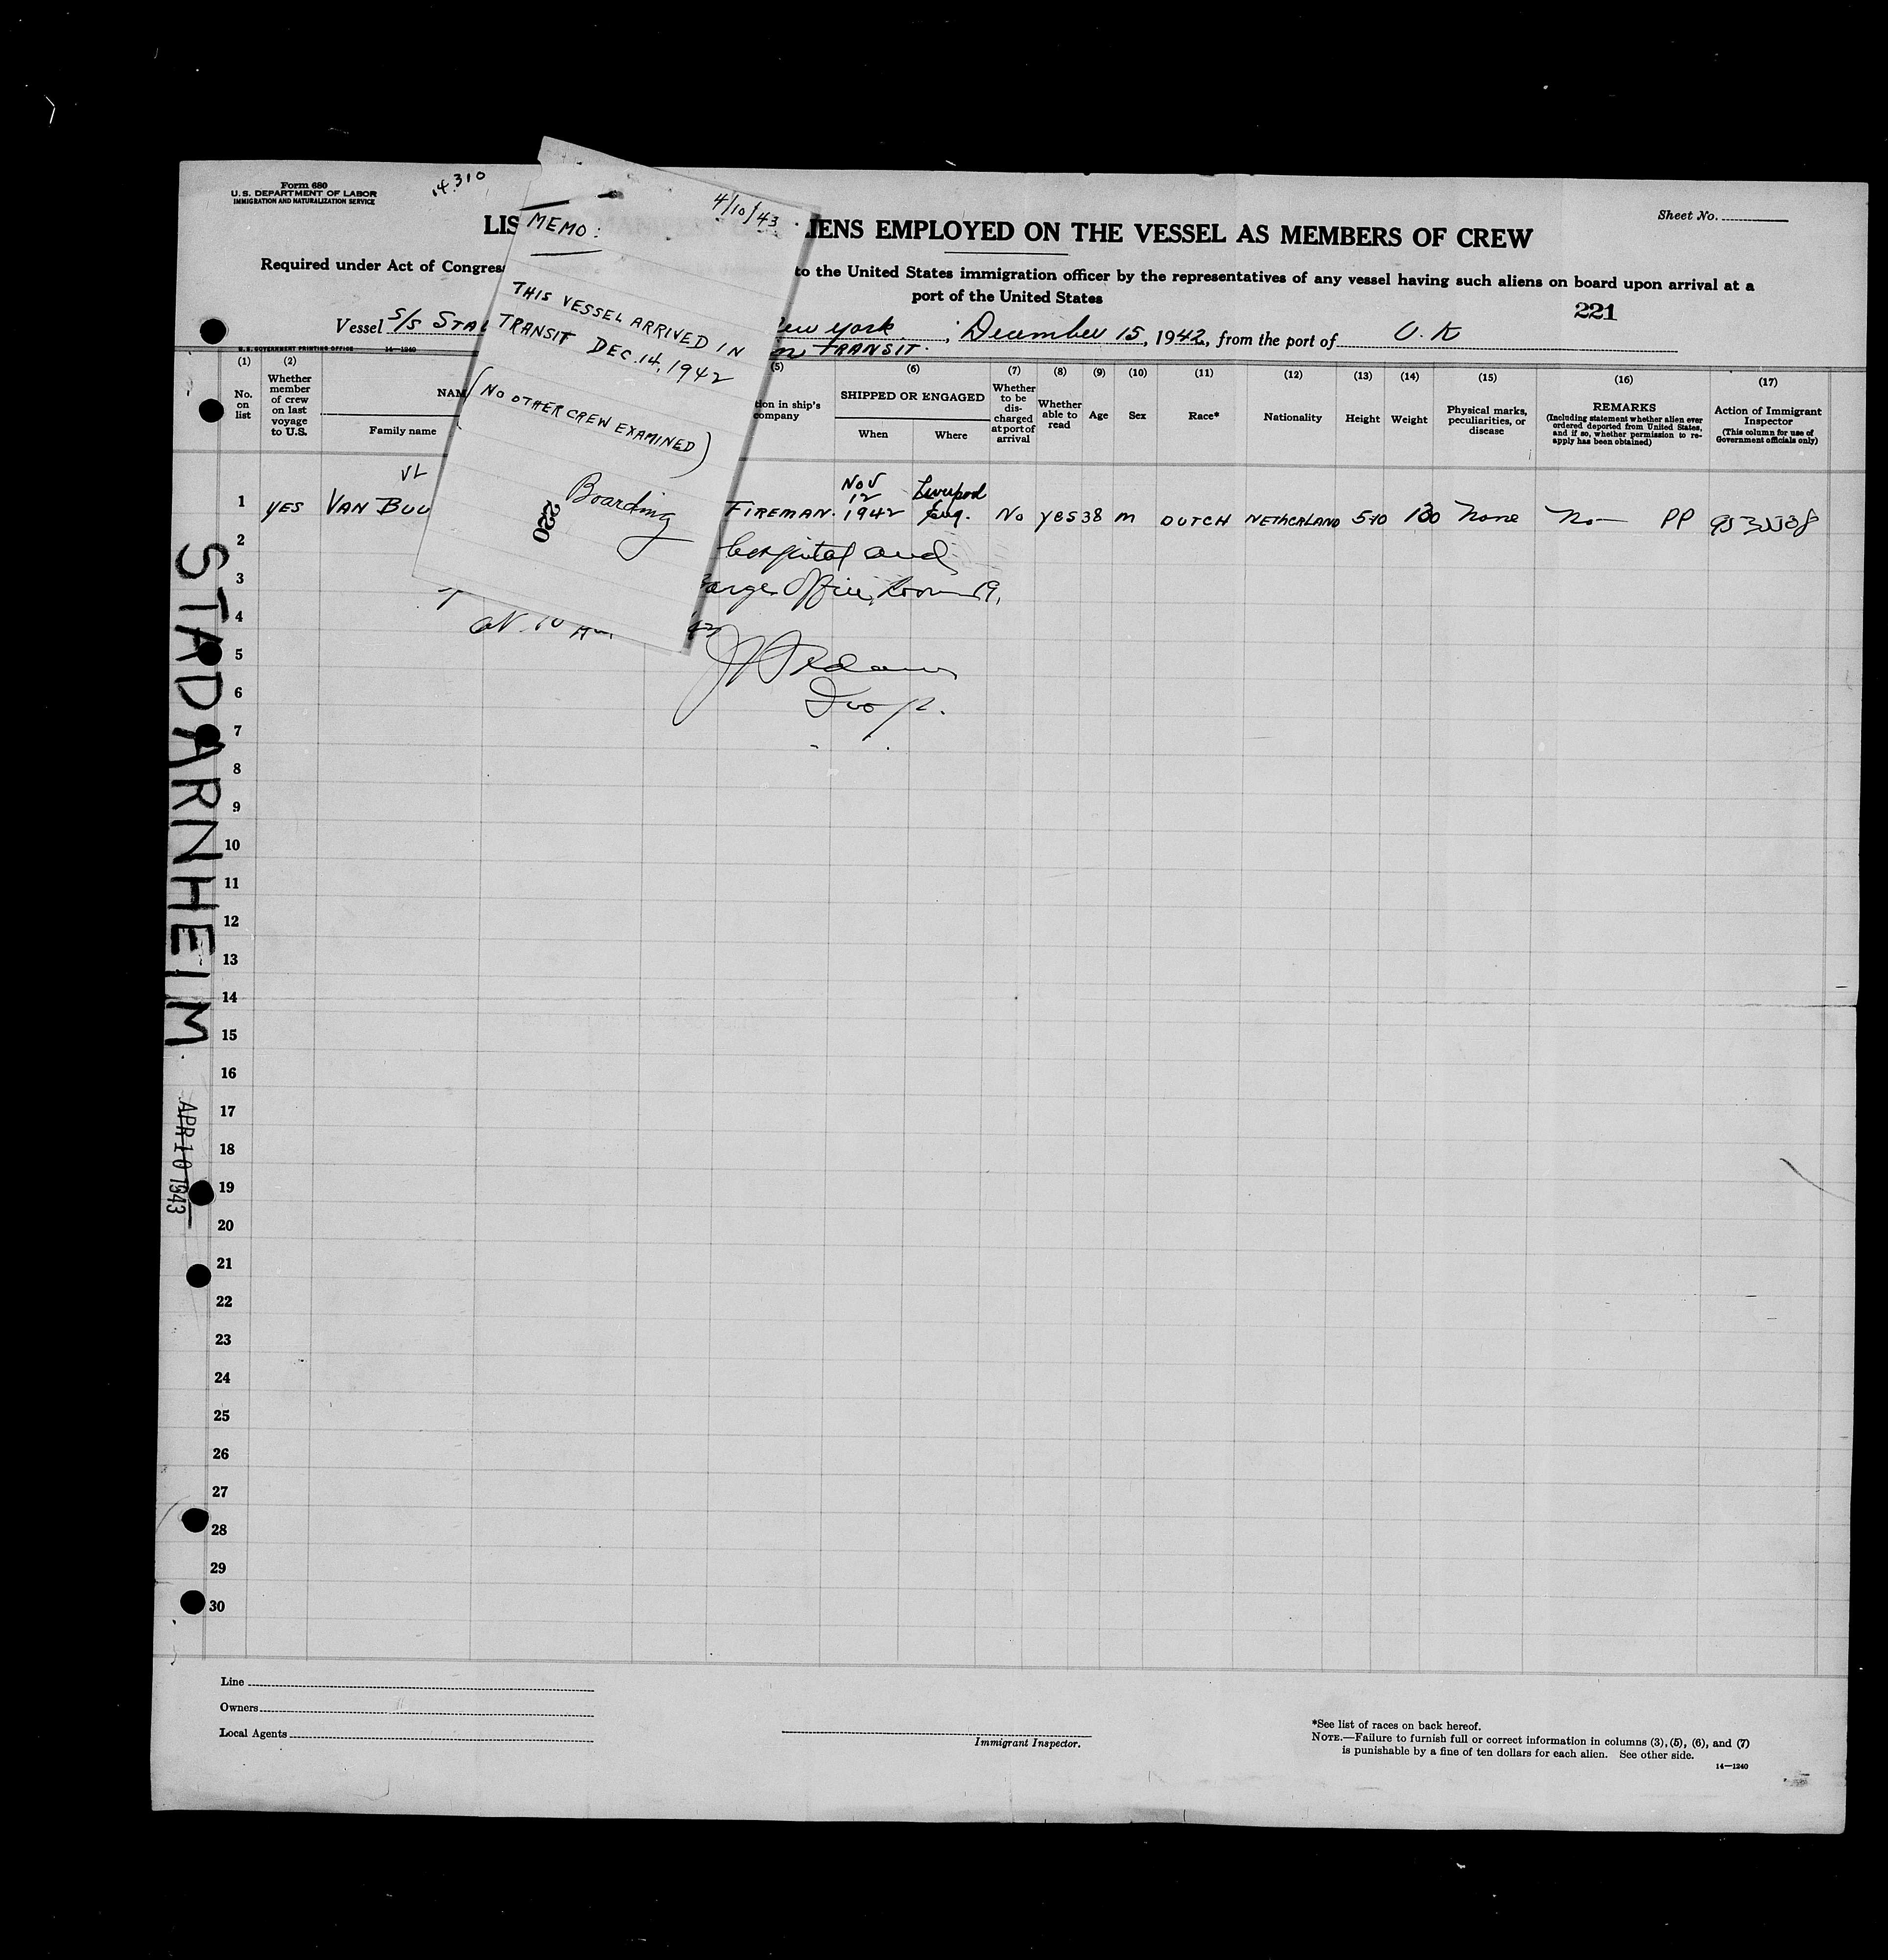 Form 680
U. S. DEPARTMENT OF LABOR
IMMIGRATION AND NATURALIZATION SERVICE
14310
Sheet No.
LIS IENS EMPLOYED ON THE VESSEL AS MEMBERS OF CREW
Required under Act of Congres to the United States immigration officer by the representatives of any vessel having such aliens on board upon arrival at a
port of the United States
221
Vessel S/S STA ew york, December 15, 1942, from the port of U. K
in TRANSIT.
U. S. GOVERNMENT PRINTING OFFICE 14—1240
MEMO: 4/10/43
THIS VESSEL ARRIVED IN
TRANSIT DEC. 14, 1942
(NO OTHER CREW EXAMINED)
Boarding
220
(1) (2) (5) (6) (7) (8) (9) (10) (11) (12) (13) (14) (15) (16) (17)
No. on list
Whether member of crew on last voyage to U.S.
NAM
Family name
tion in ship's company
SHIPPED OR ENGAGED
When Where
Whether to be discharged at port of arrival
Whether able to read
Age
Sex
Race*
Nationality
Height
Weight
Physical marks, peculiarities, or disease
REMARKS
(Including statement whether alien ever ordered deported from United States, and if so, whether permission to reapply has been obtained)
Action of Immigrant Inspector
(This column for use of Government officials only)
VL
1 YES VAN BUU FIREMAN. Nov 12 1942 Liverpool Eng. No yes 38 m DUTCH NETHERLAND 5-10 130 None No PP
2 hospital and
3 arge Office, Room 19,
4 at 10 Am
5
6 Insp.
7
8
9
10
11
12
13
14
15
16
17
18
19
20
21
22
23
24
25
26
27
28
29
30
STAD ARNHEIM.
APR 10 1943
Line
Owners
Local Agents
Immigrant Inspector.
*See list of races on back hereof.
NOTE.—Failure to furnish full or correct information in columns (3), (5), (6), and (7)
is punishable by a fine of ten dollars for each alien. See other side.
14—1240